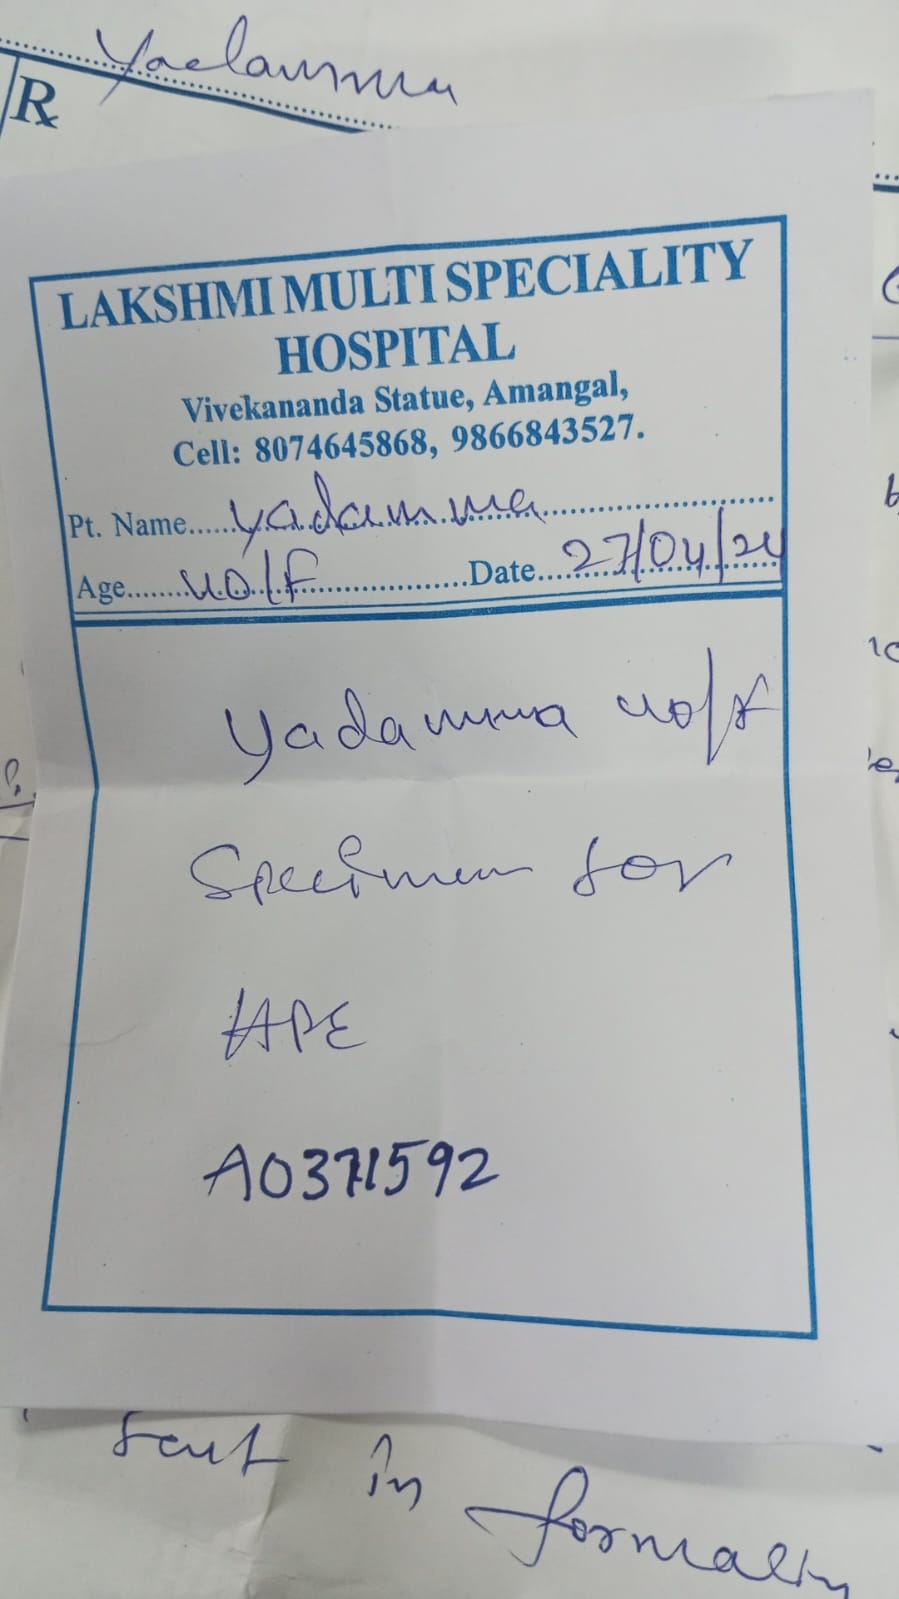 Yadamma
Rx
LAKSHMI MULTI SPECIALITY
HOSPITAL
Vivekananda Statue, Amangal,
Cell: 8074645868, 9866843527.
Pt. Name.....Yadamma
Age.......40/F................Date...27/04/24
Yadamma 40/F
Specimen for
HPE
A0371592
sent in formalin